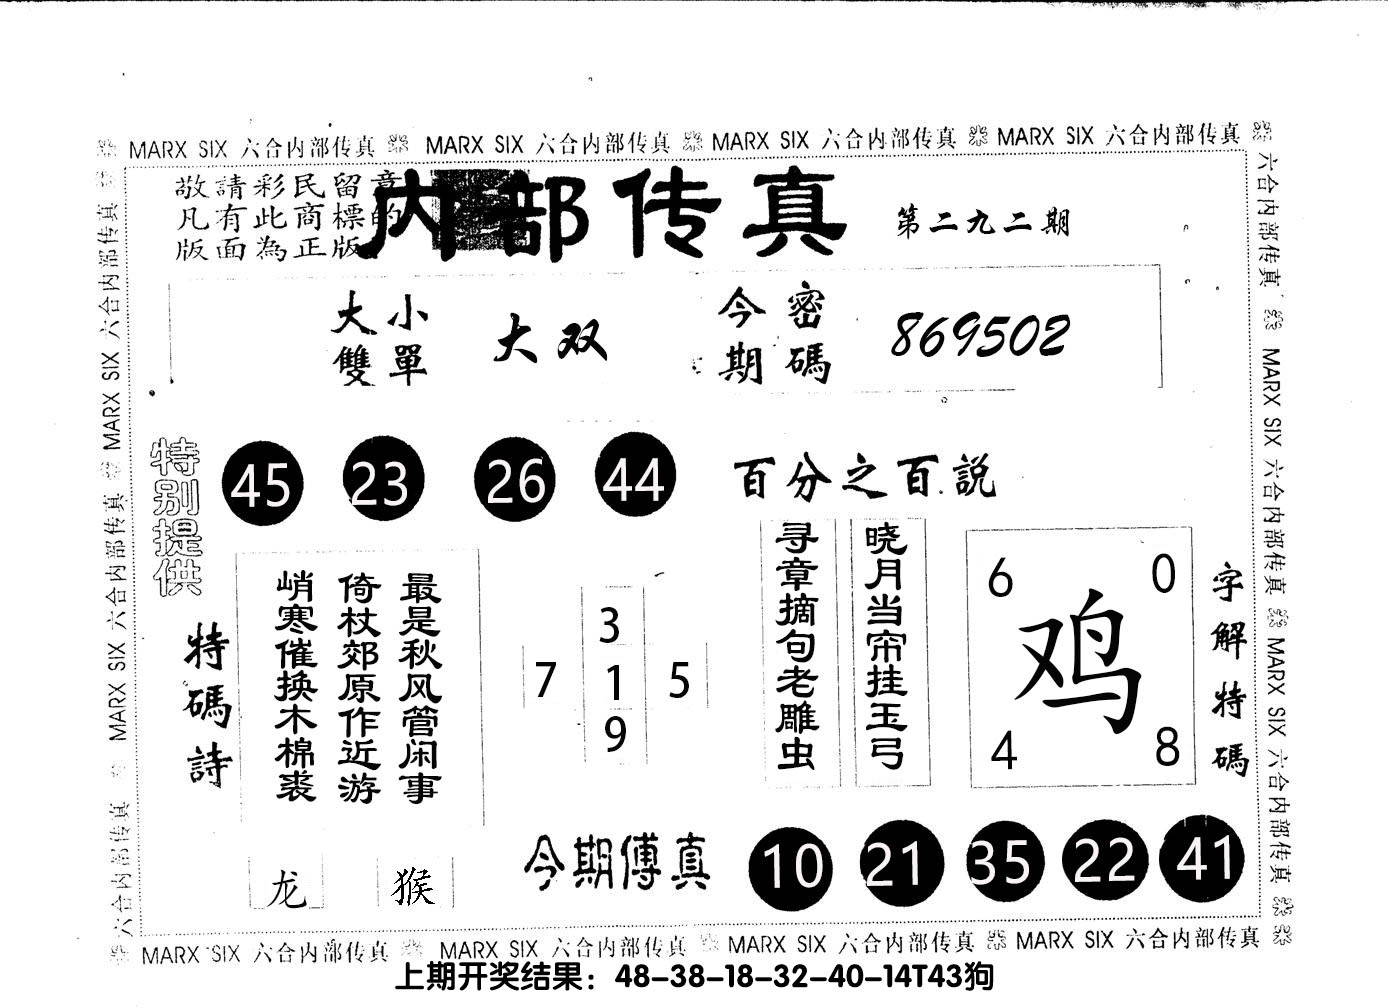 MARX SIX 六合内部传真 MARX SIX 六合内部传真 MARX SIX 六合内部传真 MARX SIX 六合内部传真
敬請彩民留意
凡有此商標的
版面為正版
内部传真
第二九二期
大小
雙單
大双
今密
期碼
869502
特别提供
45 23 26 44
百分之百説
特碼詩
最是秋风管闲事
倚杖郊原作近游
峭寒催换木棉裘
3
7 1 5
9
晓月当帘挂玉弓
寻章摘句老雕虫
6 0
鸡
4 8
字解特碼
龙 猴
今期傅真
10 21 35 22 41
六合内部传真 MARX SIX 六合内部传真 MARX SIX 六合内部传真
六合内部传真 MARX SIX 六合内部传真 MARX SIX 六合内部传真
MARX SIX 六合内部传真 MARX SIX 六合内部传真 MARX SIX 六合内部传真 MARX SIX 六合内部传真
上期开奖结果：48-38-18-32-40-14T43狗